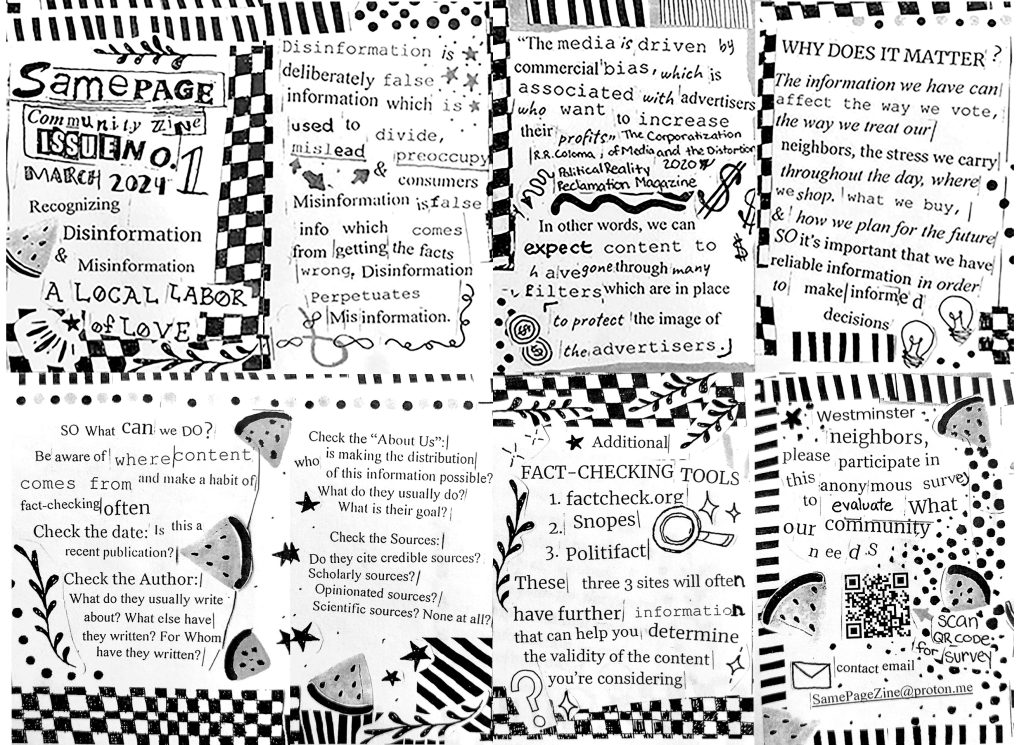 Same PAGE
Community Zine
ISSUE NO. 1
MARCH 2024
Recognizing
Disinformation
& Misinformation
A LOCAL LABOR
of LOVE
Disinformation is
deliberately false
information which is
used to divide,
mislead preoccupy
& consumers
Misinformation is false
info which comes
from getting the facts
wrong, Disinformation
Perpetuates
Misinformation.
"The media is driven by
commercial bias, which is
associated with advertisers
who want to increase
their profits" The Corporatization
R.R. Coloma, of Media and the Distortion
Political Reality 2020
Reclamation Magazine
In other words, we can
expect content to
have gone through many
filters which are in place
to protect the image of
the advertisers.
WHY DOES IT MATTER?
The information we have can
affect the way we vote,
the way we treat our
neighbors, the stress we carry
throughout the day, where
we shop. what we buy,
& how we plan for the future
SO it's important that we have
reliable information in order
to make informed
decisions
SO What can we DO?
Be aware of where content
comes from and make a habit of
fact-checking often
Check the date: Is this a
recent publication?
Check the Author:
What do they usually write
about? What else have
they written? For Whom
have they written?
Check the "About Us":
who is making the distribution
of this information possible?
What do they usually do?
What is their goal?
Check the Sources:
Do they cite credible sources?
Scholarly sources?
Opinionated sources?
Scientific sources? None at all?
Additional
FACT-CHECKING TOOLS
1. factcheck.org
2. Snopes
3. Politifact
These three 3 sites will often
have further information
that can help you determine
the validity of the content
you're considering
Westminster
neighbors,
please participate in
this anonymous survey
to evaluate What
our community
needs
scan
QR code
for survey
contact email
SamePageZine@proton.me